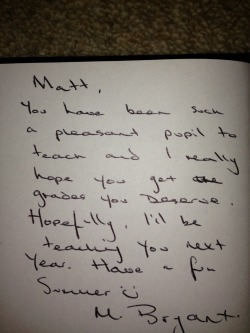 Matt,
You have been such
a pleasant pupil to
teach and I really
hope you get the
grades you Deserve.
Hopefully, I'll be
teaching you next
Year. Have a fun
Summer :)
M. Bryant.